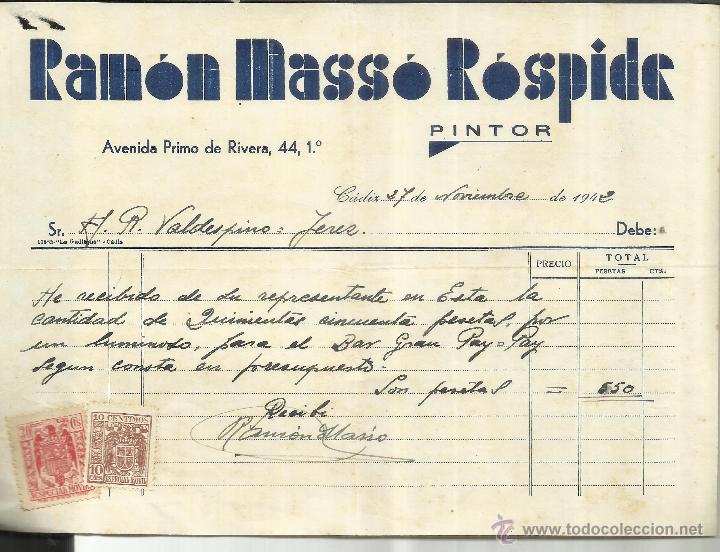 Ramón Massó Róspide
PINTOR
Avenida Primo de Rivera, 44, 1.º
Cádiz 27 de Noviembre de 1942
Sr. A. R. Valdespino = Jerez. Debe:
"La Gaditana" - Cádiz
PRECIO TOTAL
PESETAS CTS.
He recibido de su representante en Esta la
cantidad de Quinientas cincuenta pesetas, por
un luminoso, para el Bar Gran Pay=Pay
segun consta en presupuesto.
Son pesetas = 550
Recibi
Ramón Masso
10 CENTIMOS
10 CTS. ESPECIAL MOVIL
CTS.
ESPECIAL MOVIL
todocoleccion
www.todocoleccion.net